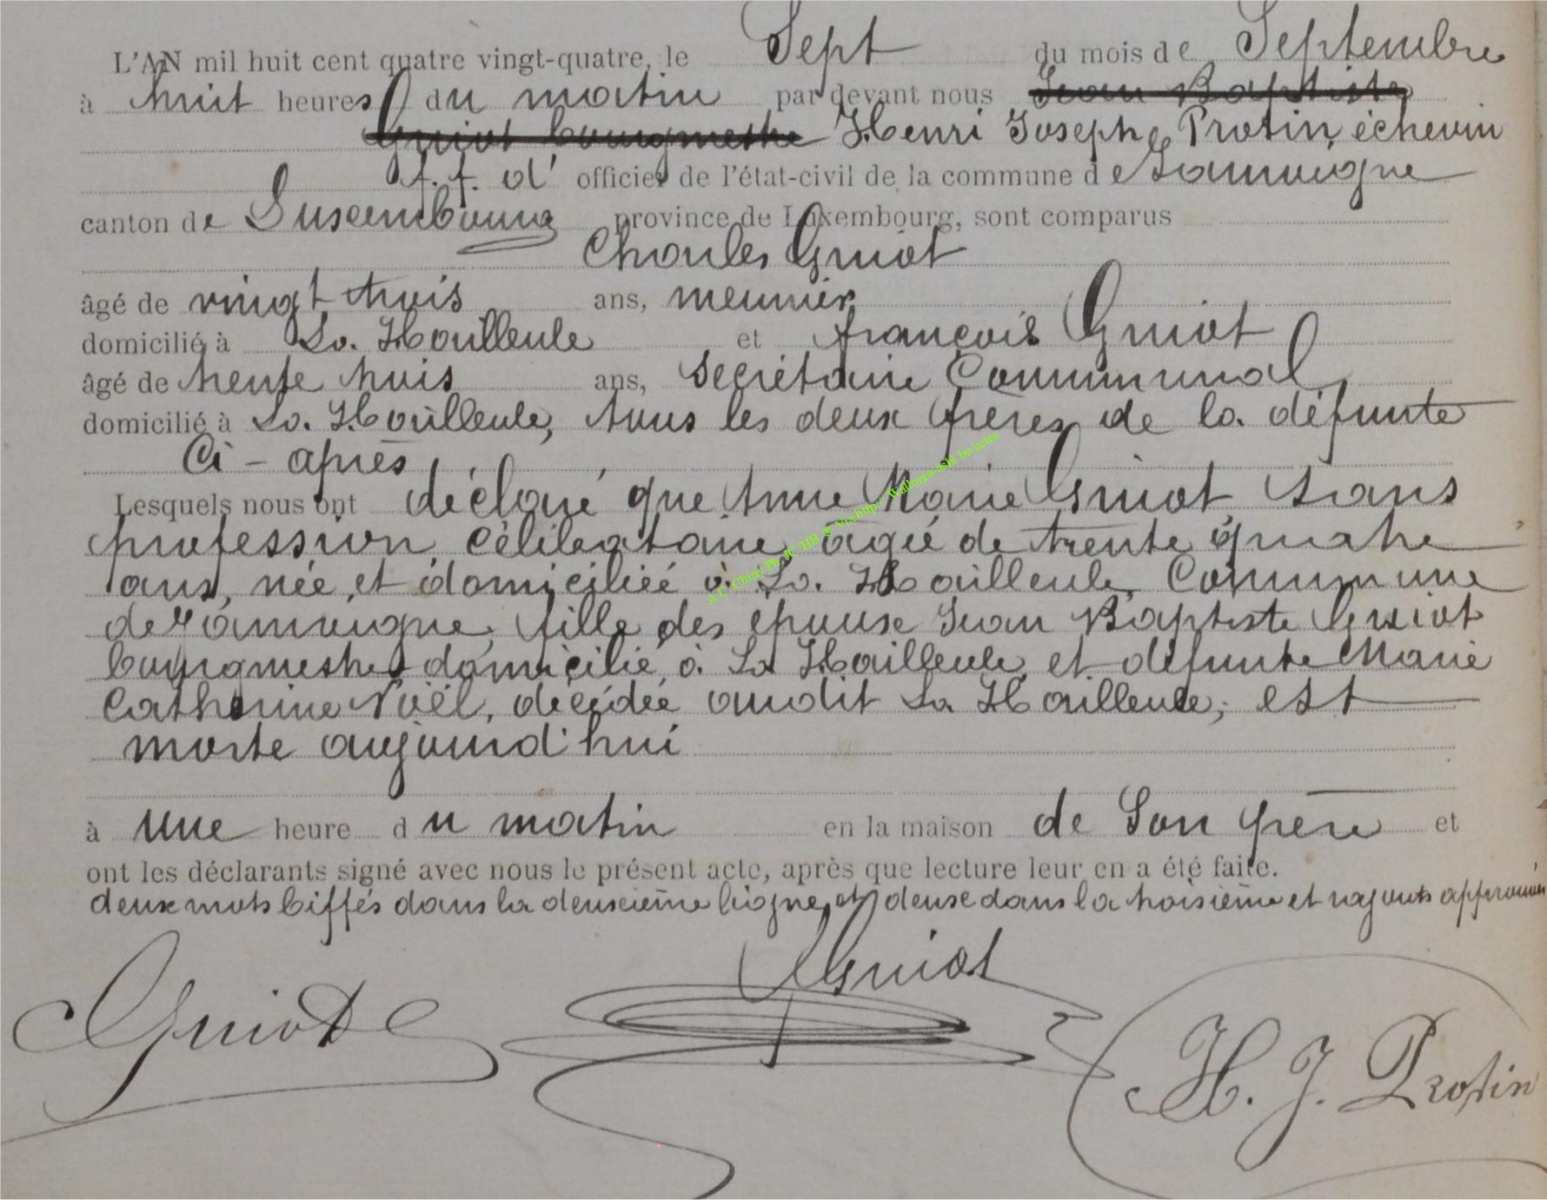 L'AN mil huit cent quatre vingt-quatre, le Sept du mois de Septembre
à huit heures du matin par devant nous Jean Baptiste
Guiot bourgmestre Henri Joseph Protin échevin
f. f. d' officier de l'état-civil de la commune de
canton de Luxembourg province de Luxembourg, sont comparus
Charles Guiot
âgé de vingt trois ans, meunier
domicilié à La Houlleule et françois Guiot
âgé de trente trois ans, secrétaire Communal
domicilié à La Houlleule, tous les deux frères de la défunte
Ci-après
Lesquels nous ont déclaré que Anne Marie Guiot, sans
profession, célibataire, agée de trente quatre
ans, née et domiciliée à La Hailleule, Commune
de fille des époux Jean Baptiste Guiot
bourgmestre domicilié à La Hailleule, et défunte Marie
Catherine Noël, décédée audit La Hailleule; est
morte aujourd'hui
à une heure du matin en la maison de Son père et
ont les déclarants signé avec nous le présent acte, après que lecture leur en a été faite.
deux mots biffés dans la deuxième ligne, et deux dans la troisième et rajouts approuvés
Guiot
Guiot
H. J. Protin